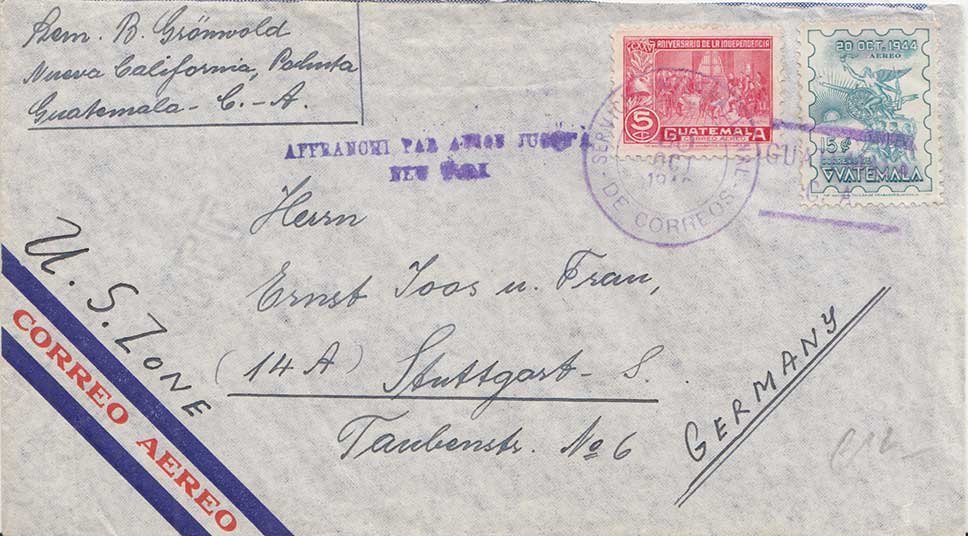 Rem. B. Grönwold
Nueva California, Pochuta
Guatemala - C. - A.
CXXV ANIVERSARIO DE LA INDEPENDENCIA
5
GUATEMALA
CORREO AEREO
20 OCT. 1944
AEREO
15¢
GVATEMALA
DE CORREOS
OCT
AFFRANCHI PAR AVION JUSQU'A
NEW YORK
Herrn
Ernst Joos u. Frau,
(14 A) Stuttgart - S.
Taubenstr. No 6
U. S. ZONE
CORREO AEREO
GERMANY